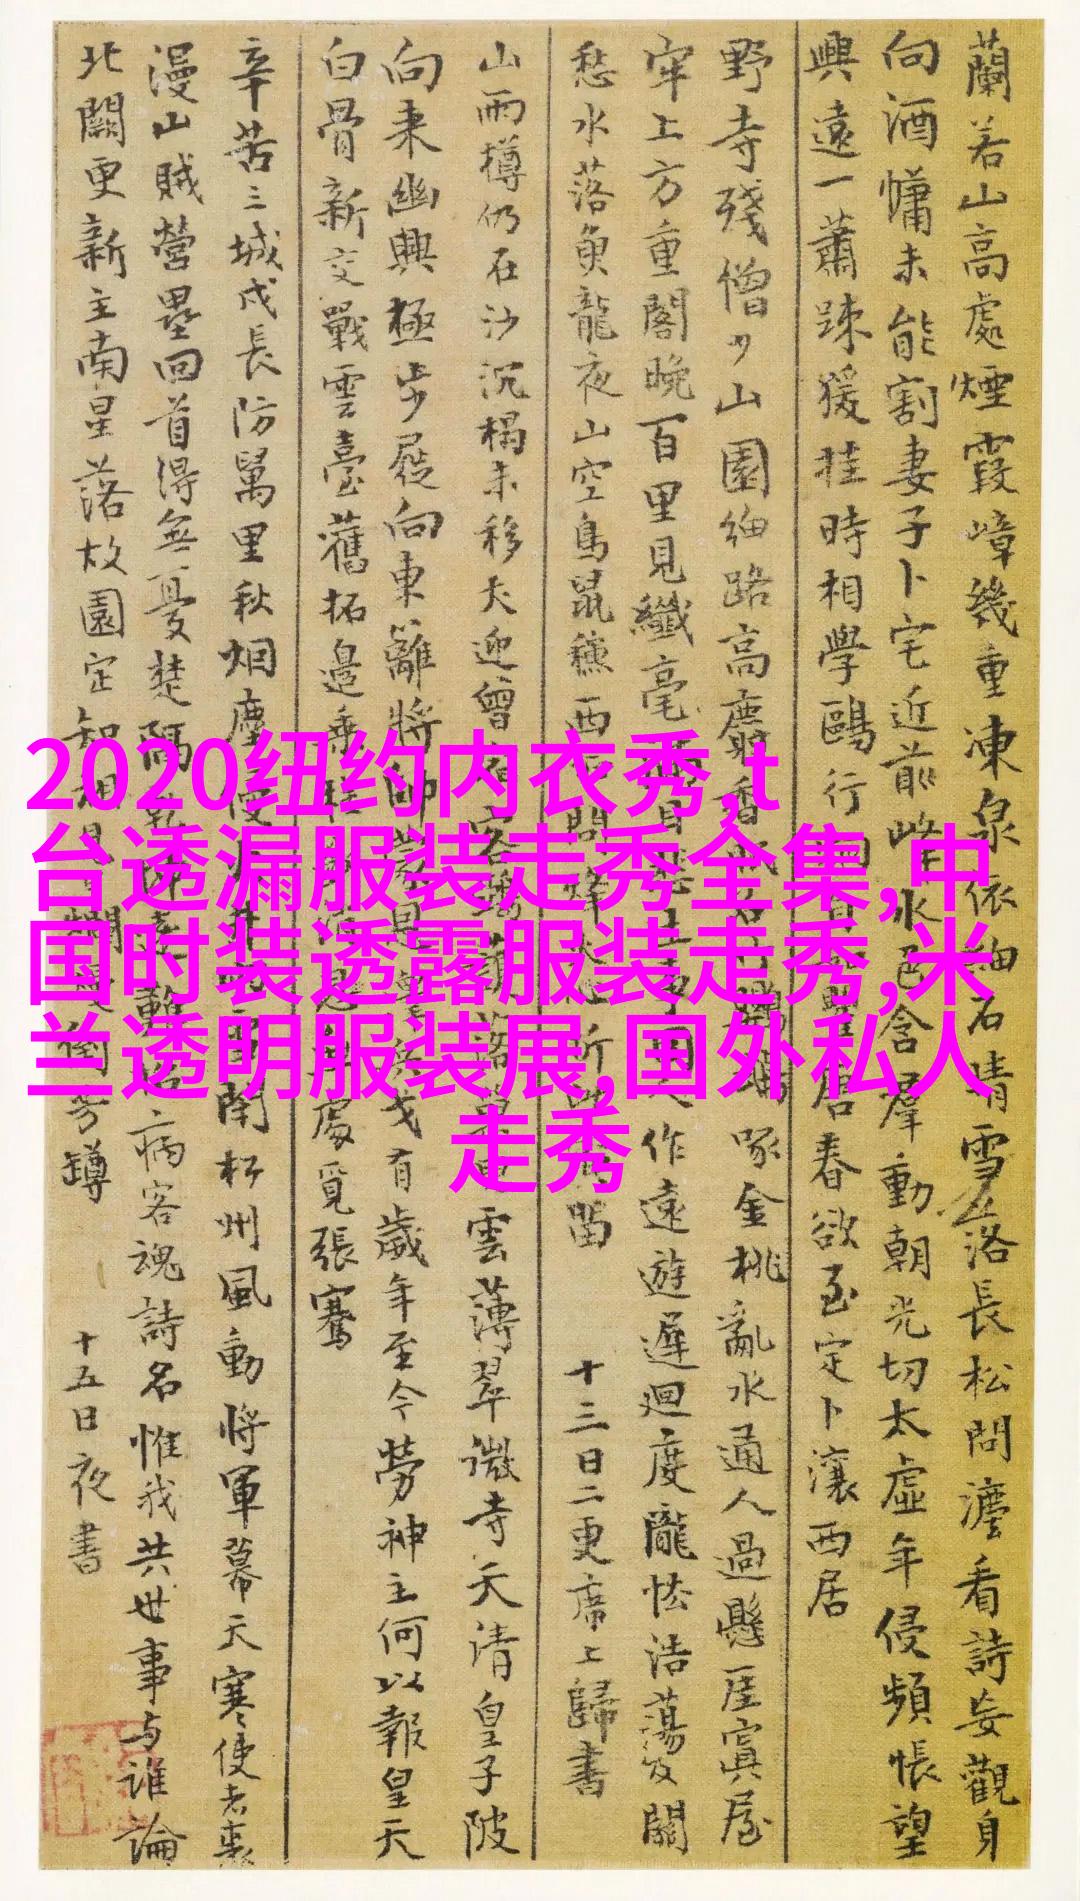 蘭若山高處煙霞嶂幾重凍泉依細石晴雪落長松問法看詩妄觀身
向酒慵未能割妻子卜宅近前峰水色含群動朝光切太虛年侵頻悵望
興遠一蕭疎猨挂時相學鷗行炯自如瞿唐春欲至定卜瀼西居
野寺殘僧少山園細路高麝香眠石竹鸚鵡啄金桃亂水通人過懸崖寘屋
牢上方重閣晚百里見纖毫
愁水落魚龍夜山空鳥鼠穐西
作遠遊遲迴度隴怯浩蕩及關
問烽火心折此淹留
十三日二更席上歸書
山雨樽仍在沙沉榻未移犬迎曾
雲薄翠微寺天清皇子陂
向來幽興極步屣向東籬
將帥蒙恩澤兵戈有歲年至今勞神主何以報皇天
白骨新交戰雲臺舊拓邊乘
處覓張騫
辛苦三城戍長防萬里秋烟塵侵
開杯州風動將軍幕天寒使者裘
漫山賊營壘回首得無憂楚隔乾坤遠難
病客魂詩名惟我共世事与誰論
北闕更新主南星落故園定知相見日爛漫倒芳罇
十五日夜書
2020纽约内衣秀,t
台透漏服装走秀全集,中
国时装透露服装走秀,米
兰透明服装展,国外私人
走秀